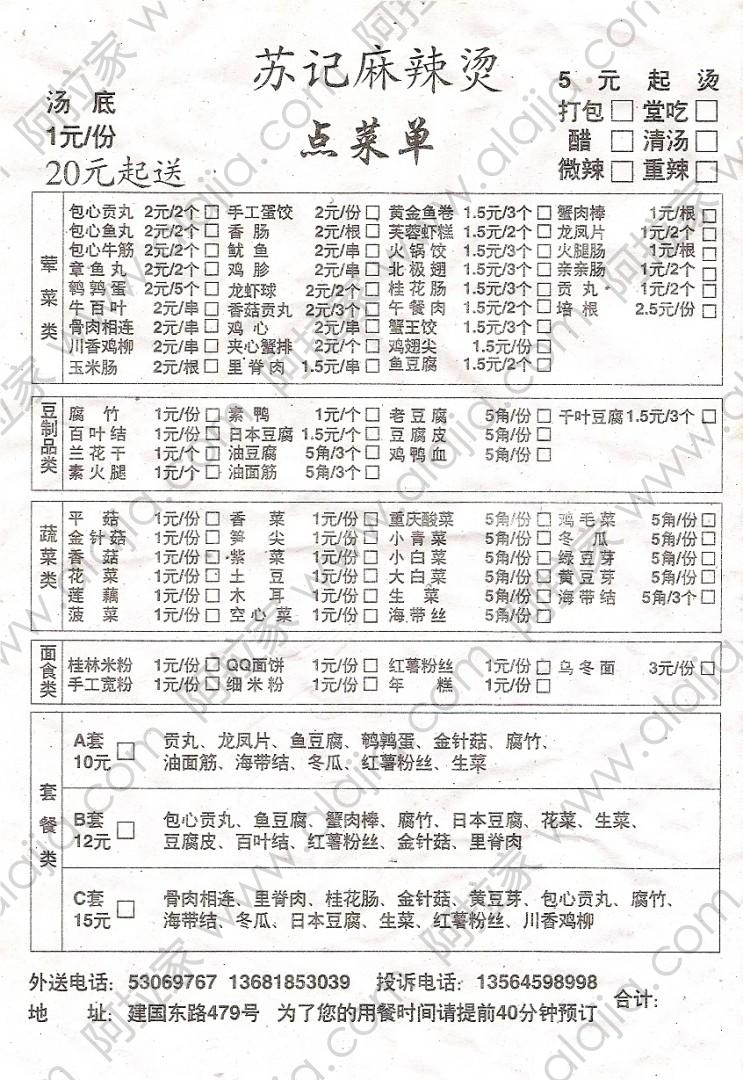 苏记麻辣烫
点菜单
汤 底
1元/份
20元起送
5 元 起 烫
打包 □ 堂吃 □
醋 □ 清汤 □
微辣 □ 重辣 □
荤菜类
包心贡丸 2元/2个 □ 手工蛋饺 2元/份 □ 黄金鱼卷 1.5元/3个 □ 蟹肉棒 1元/根 □
包心鱼丸 2元/2个 □ 香 肠 2元/根 □ 芙蓉虾糕 1.5元/2个 □ 龙凤片 1元/2个 □
包心牛筋 2元/2个 □ 鱿 鱼 2元/串 □ 火锅饺 1.5元/3个 □ 火腿肠 1元/根 □
章鱼丸 2元/2个 □ 鸡 胗 2元/串 □ 北极翅 1.5元/3个 □ 亲亲肠 1元/2个 □
鹌鹑蛋 2元/5个 □ 龙虾球 2元/2个 □ 桂花肠 1.5元/3个 □ 贡 丸 1元/2个 □
牛百叶 2元/串 □ 香菇贡丸 2元/3个 □ 午餐肉 1.5元/3个 □ 培 根 2.5元/份 □
骨肉相连 2元/串 □ 鸡 心 2元/串 □ 蟹王饺 1.5元/3个 □
川香鸡柳 2元/串 □ 夹心蟹排 2元/个 □ 鸡翅尖 1.5元/份 □
玉米肠 2元/根 □ 里脊肉 1.5元/串 □ 鱼豆腐 1.5元/2个 □
豆制品类
腐 竹 1元/份 □ 素 鸭 1元/个 □ 老豆腐 5角/份 □ 千叶豆腐 1.5元/3个 □
百叶结 1元/份 □ 日本豆腐 1.5元/个 □ 豆腐皮 5角/份 □
兰花干 1元/个 □ 油豆腐 5角/3个 □ 鸡鸭血 5角/份 □
素火腿 1元/个 □ 油面筋 5角/3个 □
蔬菜类
平 菇 1元/份 □ 香 菜 1元/份 □ 重庆酸菜 5角/份 □ 鸡毛菜 5角/份 □
金针菇 1元/份 □ 笋 尖 1元/份 □ 小青菜 5角/份 □ 冬 瓜 5角/份 □
香 菇 1元/份 □ 紫 菜 1元/份 □ 小白菜 5角/份 □ 绿豆芽 5角/份 □
花 菜 1元/份 □ 土 豆 1元/份 □ 大白菜 5角/份 □ 黄豆芽 5角/份 □
莲 藕 1元/份 □ 木 耳 1元/份 □ 生 菜 5角/份 □ 海带结 5角/3个 □
菠 菜 1元/份 □ 空心菜 1元/份 □ 海带丝 5角/份 □
面食类
桂林米粉 1元/份 □ QQ面饼 1元/份 □ 红薯粉丝 1元/份 □ 乌冬面 3元/份 □
手工宽粉 1元/份 □ 细米粉 1元/份 □ 年 糕 1元/份 □
套餐类
A套 □ 贡丸、龙凤片、鱼豆腐、鹌鹑蛋、金针菇、腐竹、
10元 油面筋、海带结、冬瓜、红薯粉丝、生菜
B套 □ 包心贡丸、鱼豆腐、蟹肉棒、腐竹、日本豆腐、花菜、生菜、
12元 豆腐皮、百叶结、红薯粉丝、金针菇、里脊肉
C套 □ 骨肉相连、里脊肉、桂花肠、金针菇、黄豆芽、包心贡丸、腐竹、
15元 海带结、冬瓜、日本豆腐、生菜、红薯粉丝、川香鸡柳
外送电话：53069767 13681853039 投诉电话：13564598998
地 址：建国东路479号 为了您的用餐时间请提前40分钟预订 合计：
阿拉家 www.alajia.com